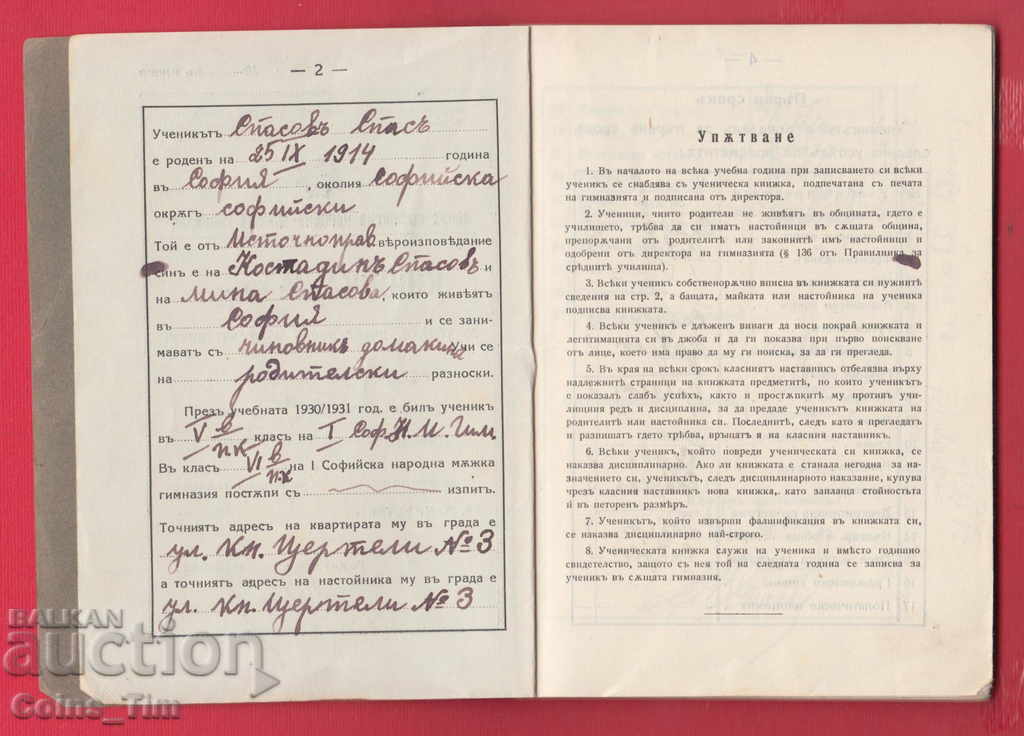 — 2 —
Ученикътъ Спасовъ Спасъ
е роденъ на 25 IX 1914 година
въ София, околия Софийска
окрѫгъ софийски
Той е отъ Источноправ. вѣроизповѣдание
синъ е на Костадинъ Спасовъ и
на Мина Спасова, които живѣятъ
въ София и се зани-
маватъ съ чиновникъ домакиня Учи се
на родителски разноски.
Презъ учебната 1930/1931 год. е билъ ученикъ
въ V в пк класъ на I Соф. Н. М. Гим.
Въ класъ VI в пк на I Софийска народна мѫжка
гимназия постѫпи съ изпитъ.
Точниятъ адресъ на квартирата му въ града е
ул. Кн. Цертели № 3
а точниятъ адресъ на настойника му въ града е
ул. Кн. Цертели № 3
Упѫтване
1. Въ началото на всѣка учебна година при записването си всѣки
ученикъ се снабдява съ ученическа книжка, подпечатана съ печата
на гимназията и подписана отъ директора.
2. Ученици, чиито родители не живѣятъ въ общината, гдето е
училището, трѣбва да си иматъ настойници въ сѫщата община,
препорѫчани отъ родителитѣ или законнитѣ имъ настойници и
одобрени отъ директора на гимназията (§ 136 отъ Правилника за
срѣднитѣ училища).
3. Всѣки ученикъ собственорѫчно вписва въ книжката си нужнитѣ
сведения на стр. 2, а бащата, майката или настойника на ученика
подписва книжката.
4. Всѣки ученикъ е длъженъ винаги да носи покрай книжката и
легитимацията си въ джоба и да ги показва при първо поискване
отъ лице, което има право да му ги поиска, за да ги прегледа.
5. Въ края на всѣки срокъ класниятъ наставникъ отбелязва върху
надлежнитѣ страници на книжката предметитѣ, по които ученикътъ
е показалъ слабъ успѣхъ, както и простѫпкитѣ му противъ учи-
лищния редъ и дисциплина, за да предаде ученикътъ книжката на
родителитѣ или настойника си. Последнитѣ, следъ като я прегледатъ
и разпишатъ гдето трѣбва, връщатъ я на класния наставникъ.
6. Всѣки ученикъ, който повреди ученическата си книжка, се
наказва дисциплинарно. Ако ли книжката е станала негодна за на-
значението си, ученикътъ, следъ дисциплинарното наказание, купува
чрезъ класния наставникъ нова книжка, като заплаща стойностьта
ѝ въ петоренъ размѣръ.
7. Ученикътъ, който извърши фалшификация въ книжката си,
се наказва дисциплинарно най-строго.
8. Ученическата книжка служи на ученика и вмѣсто годишно
свидетелство, защото съ нея той на следната година се записва за
ученикъ въ сѫщата гимназия.
BALKAN
auction
Coins_Tim